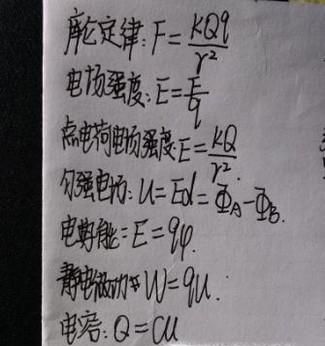 库仑定律: F = kQq/r²
电场强度: E = F/q
点电荷电场强度: E = kQ/r².
匀强电场: U = Ed = Φ_A - Φ_B.
电势能 = E = qφ.
静电做功 W = qU.
电容: Q = CU